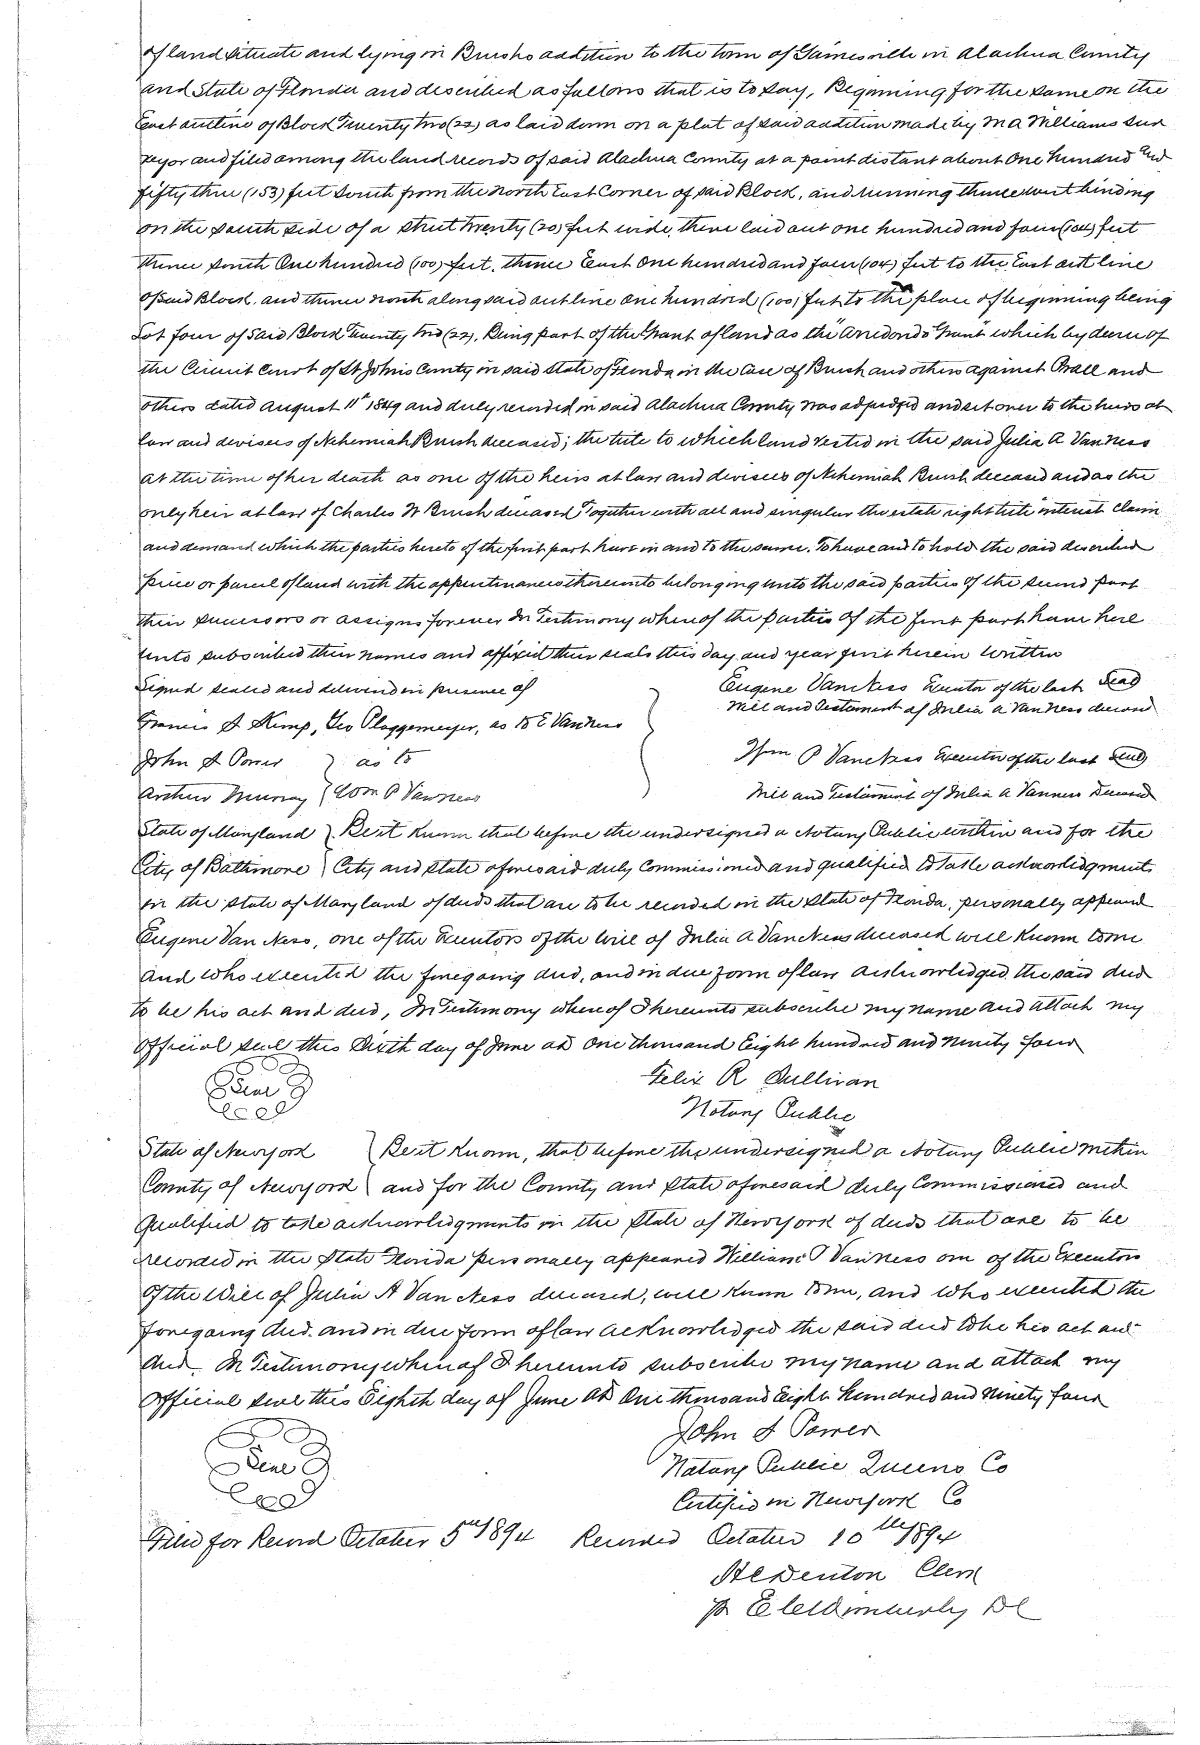 of land situate and lying in Brush's addition to the town of Gainesville in Alachua County
and State of Florida and described as follows that is to say, Beginning for the same on the
East outline of Block Twenty two (22) as laid down on a plat of said addition made by M A Williams Sur
veyor and filed among the land records of said Alachua County at a point distant about One hundred and
fifty three (153) feet South from the North East Corner of said Block, and running thence west binding
on the south side of a street twenty (20) feet wide, there laid out one hundred and four (104) feet
thence south One hundred (100) feet, thence East One hundred and four (104) feet to the East out line
of said Block, and thence north along said outline one hundred (100) feet to the place of beginning being
Lot four of said Block Twenty two (22), Being part of the Grant of land as the "Arredondo Grant" which by decree of
the Circuit Court of St Johns County in said State of Florida in the Case of Brush and others against and
others dated August 11th 1849 and duly recorded in said Alachua County was adjudged and set over to the heirs at
law and devisees of Nehemiah Brush deceased; the title to which land vested in the said Julia A Van Ness
at the time of her death as one of the heirs at law and devisees of Nehemiah Brush deceased and as the
only heir at law of Charles W Brush deceased Together with all and singular the estate right title interest claim
and demand which the parties hereto of the first part have in and to the same. To have and to hold the said described
piece or parcel of land with the appurtenances thereunto belonging unto the said parties of the second part
their successors or assigns forever In Testimony whereof the parties of the first part have here
unto subscribed their names and affixed their seals this day and year first herein written
Signed sealed and delivered in presence of
Eugene Van Ness Executor of the last Seal
will and Testament of Julia A Van Ness deceased
Francis S Kemp, Geo Plaggemeyer, as to E Van Ness
John S Power } as to
Wm P Van Ness Executor of the last Seal
Arthur Murray } Wom P Van Ness
will and Testament of Julia A Vanness Deceased
State of Maryland } Be it Known that before the undersigned a Notary Public within and for the
City of Baltimore } City and State aforesaid duly Commissioned and qualified to take acknowledgments
in the State of Maryland of deeds that are to be recorded in the State of Florida, personally appeared
Eugene Van Ness, one of the Executors of the Will of Julia A Van Ness deceased well Known to me
and who executed the foregoing deed, and in due form of law acknowledged the said deed
to be his act and deed, In Testimony whereof I hereunto subscribe my name and attach my
official seal this Sixth day of June AD One thousand Eight hundred and ninety four
Seal
Felix R Sullivan
Notary Public
State of Newyork } Be it Known, that before the undersigned a Notary Public within
County of Newyork } and for the County and State aforesaid duly Commissioned and
Qualified to take acknowledgments in the State of Newyork of deeds that are to be
recorded in the State Florida personally appeared William P VanNess one of the Executors
of the Will of Julia A Van Ness deceased, well Known to me, and who executed the
foregoing deed. and in due form of law acknowledged the said deed to be his act and
deed. In Testimony whereof I hereunto subscribe my name and attach my
official seal this Eighth day of June AD One thousand Eight hundred and Ninety four
Seal
John S Power
Notary Public Queens Co
Certified in Newyork Co
Filed for Record October 5th 1894 Recorded October 10th 1894
Denton Clerk
DC